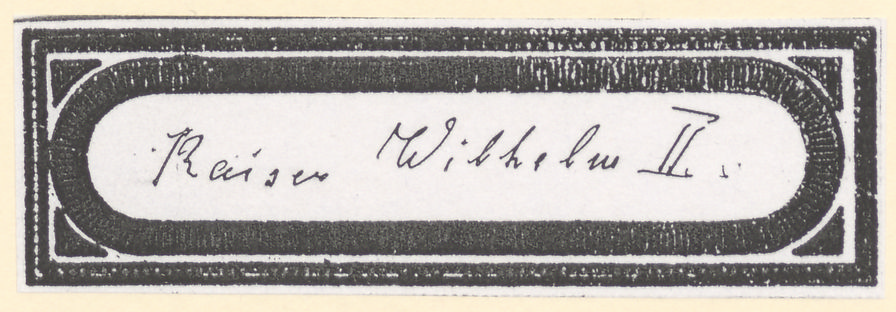 Kaiser Wilhelm II.